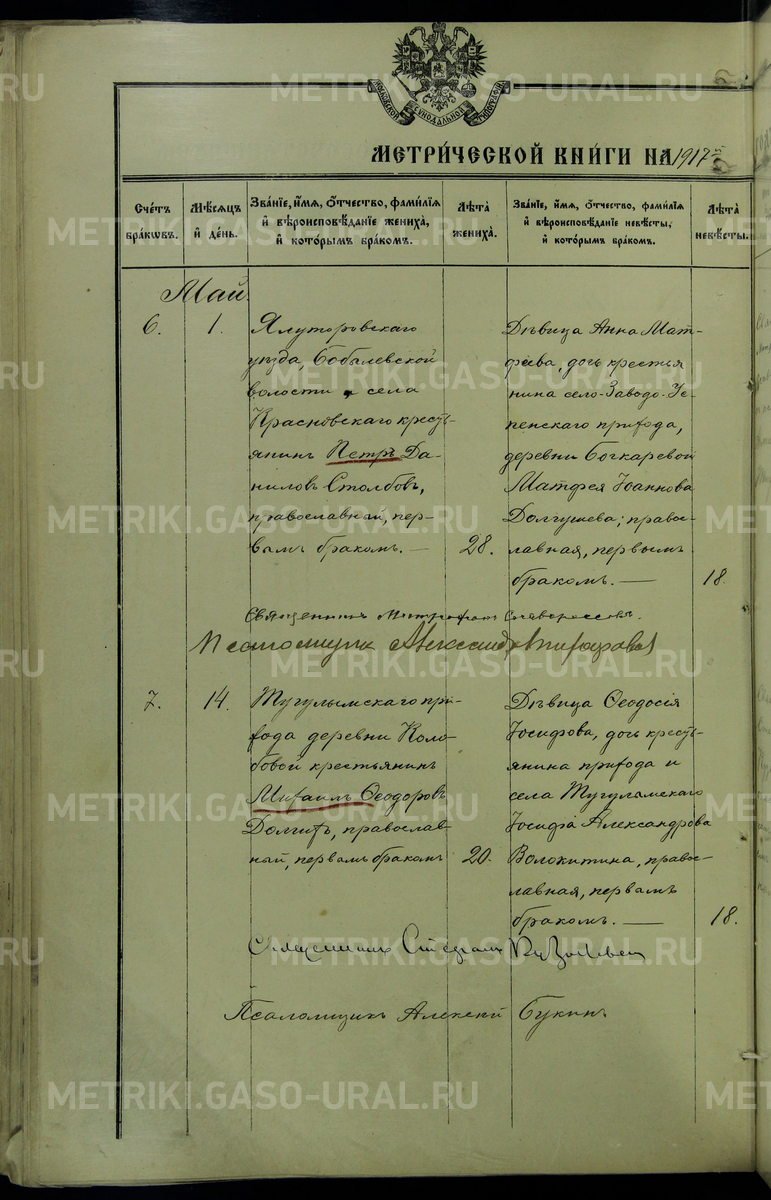 МОСКОВСКОЙ СѴНОДАЛЬНОЙ ТИПОГРАФІИ
МЕТРИ́ЧЕСКОЙ КНИ́ГИ НА 1917й
Сче́тъ бра́кѡвъ.
Мѣ́сѧцъ и҆ де́нь.
Зва́нїе, и҆́мѧ, ѻ҆́тчество, фами́лїѧ и҆ вѣроисповѣ́данїе жениха̀, и҆ кото́рымъ бра́комъ.
Лѣ́та жениха̀.
Зва́нїе, и҆́мѧ, ѻ҆́тчество, фами́лїѧ и҆ вѣроисповѣ́данїе невѣ́сты, и҆ кото́рымъ бра́комъ.
Лѣ́та невѣ́сты.
Май
6.
1.
Ялуторовскаго
уѣзда, Собалевской
волости села
Красновскаго кресть-
янинъ Петръ Да-
ниловъ Столбовъ,
православный, пер-
вымъ бракомъ. —
28.
Дѣвица Анна Мат-
фѣева, дочь крестья
нина село-Заводо-Ус-
пенскаго прихода,
деревни Бочкаревой
Матфея Іоаннова
Долгушева; правос-
лавная, первымъ
бракомъ. —
18.
Священникъ Митрофанъ
Псаломщик Александр
7.
14.
Тугулымскаго при-
хода деревни Коло-
бовой крестьянинъ
Михаилъ Ѳеодоровъ
Долгихъ, православ-
ный, первымъ бракомъ
20.
Дѣвица Ѳеодосія
Іосифова, дочь кресть-
янина прихода и
села Тугулымскаго
Іосифа Александрова
Волокитина, правос-
лавная, первымъ
бракомъ. —
18.
Священникъ Стефанъ
Псаломщикъ Алексій Букинъ
METRIKI.GASO-URAL.RU